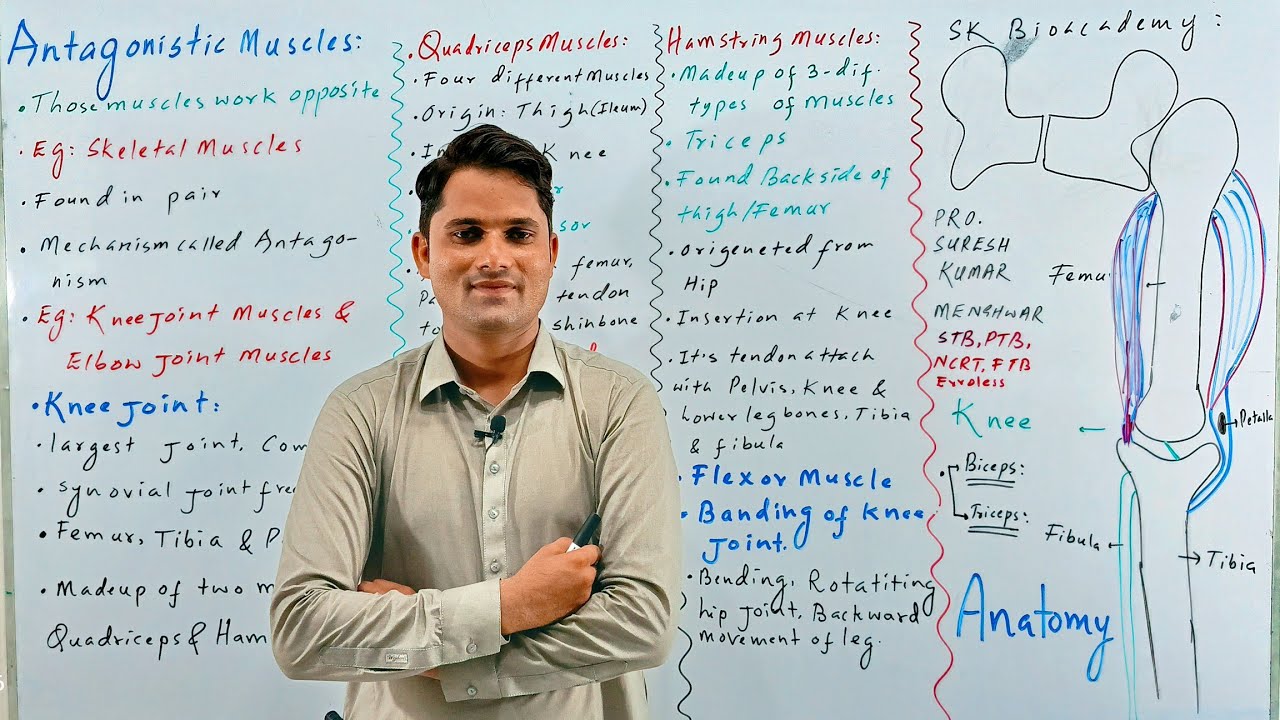 Antagonistic Muscles:
• Those muscles work opposite
• Eg: Skeletal Muscles
• Found in pair
• Mechanism called Antago-
nism
• Eg: Knee joint Muscles &
Elbow joint Muscles
• Knee joint:
• largest joint, Com
• synovial joint fre
• Femur, Tibia & P
• Madeup of two m
Quadriceps & Ham
• Quadriceps Muscles:
• Four different Muscles
• Origin: Thigh (Ileum)
• In Knee
sor
femur,
tendon
to shinbone
Hamstring Muscles:
• Madeup of 3-dif.
types of Muscles
• Triceps
• Found Backside of
thigh/Femur
• Origeneted from
Hip
• Insertion at Knee
• It's tendon attach
with Pelvis, Knee &
Lower leg bones, Tibia
& fibula
• Flexor Muscle
• Banding of Knee
Joint.
• Bending, Rotatiting
hip joint, Backward
movement of leg.
SK Bioacademy:
PRO.
SURESH
KUMAR
MENGHWAR
STB, PTB,
NCRT, FTB
Erroless
Femur
Knee
Petalla
• Biceps:
Triceps:
Fibula
Tibia
Anatomy